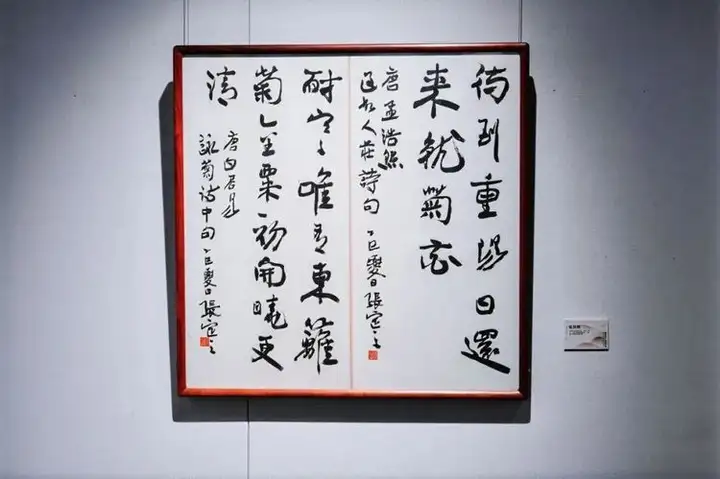 待到重陽日還
来就菊花
唐孟浩然
過故人莊詩句 乙巳夏日張
耐寒唯有東籬
菊金粟初開曉更
清
唐白居易
詠菊詩中句 乙巳夏日張